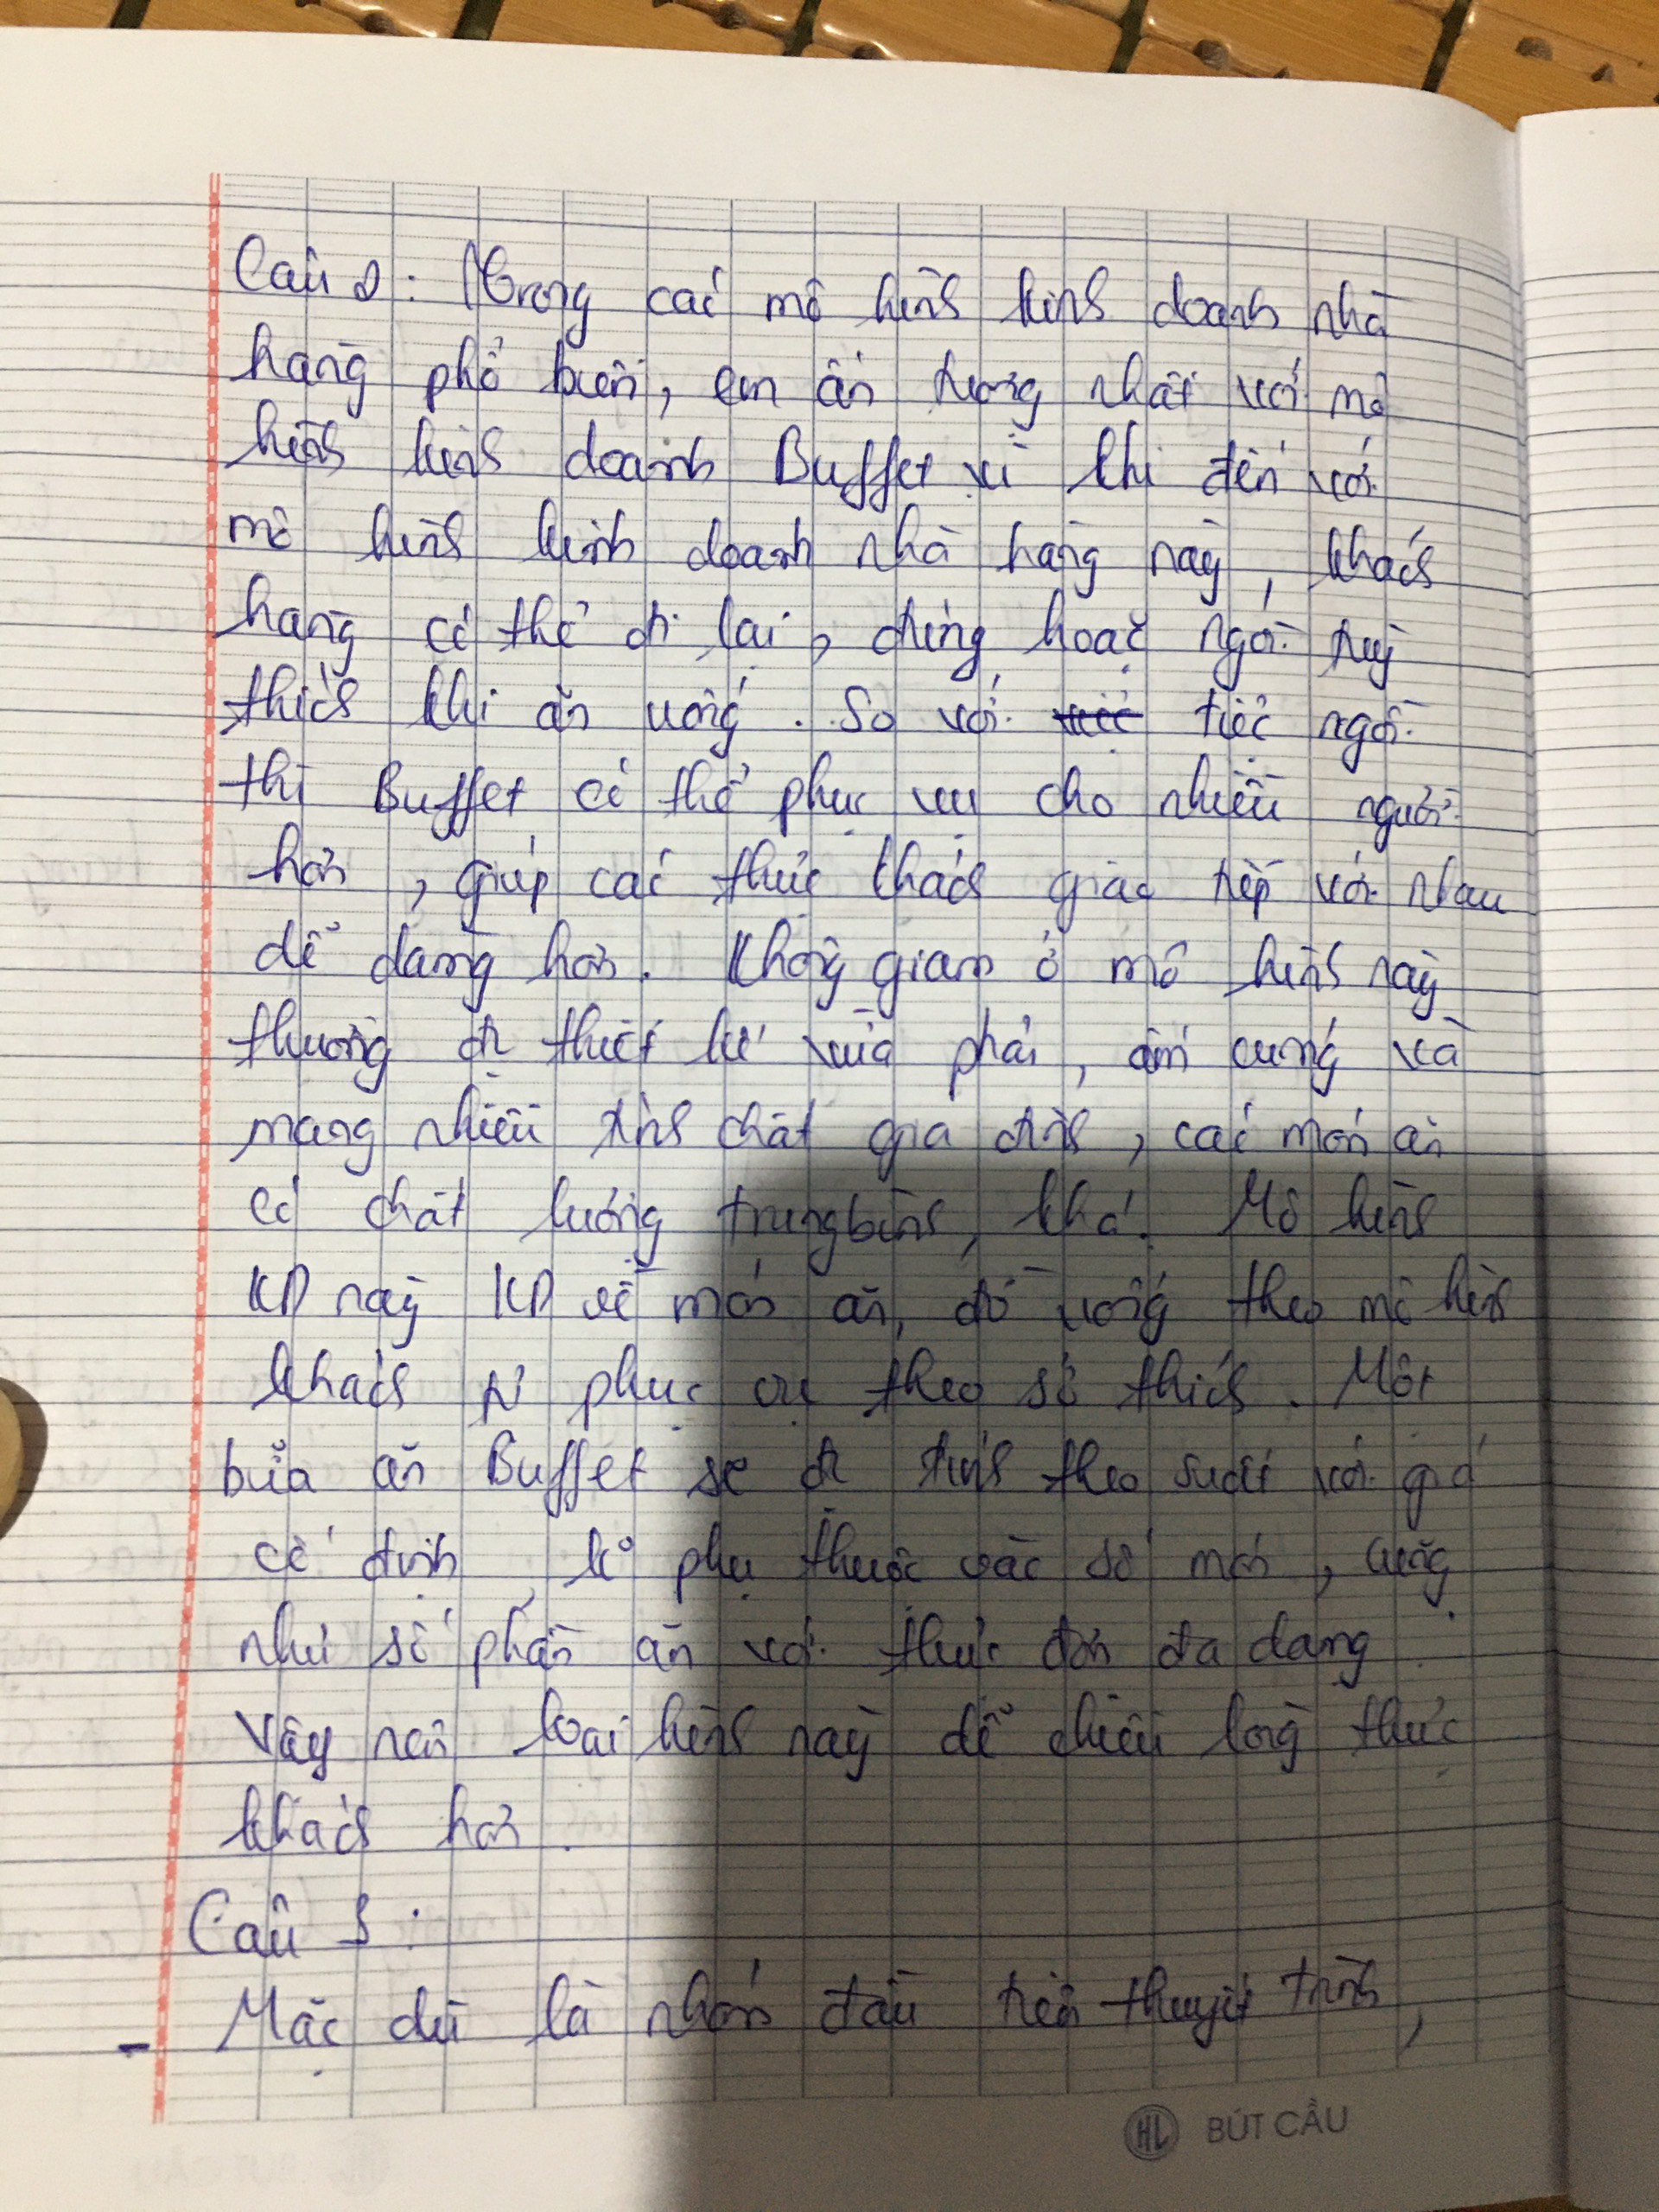 Câu 2: Trong các mô hình kinh doanh nhà
hàng phổ biến, em ấn tượng nhất với mô
hình kinh doanh Buffet vì khi đến với
mô hình kinh doanh nhà hàng này, khách
hàng có thể đi lại, đứng hoặc ngồi tuỳ
thích khi ăn uống. So với tiệc ngồi
thì Buffet có thể phục vụ cho nhiều người
hơn, giúp các thực khách giao tiếp với nhau
dễ dàng hơn. Không gian ở mô hình này
thường đc thiết kế vừa phải, ấm cúng và
mang nhiều tính chất gia đình, các món ăn
có chất lượng trung bình, khá. Mô hình
KD này KD về món ăn, đồ uống theo mô hình
khách tự phục vụ theo sở thích. Một
bữa ăn Buffet sẽ đc tính theo suất với giá
cố định, k° phụ thuộc vào số món, cũng
như số phần ăn với thực đơn đa dạng.
Vậy nên loại hình này dễ chiều lòng thực
khách hơn.
Câu 3:
- Mặc dù là nhóm đầu tiên thuyết trình,
HL BÚT CẦU